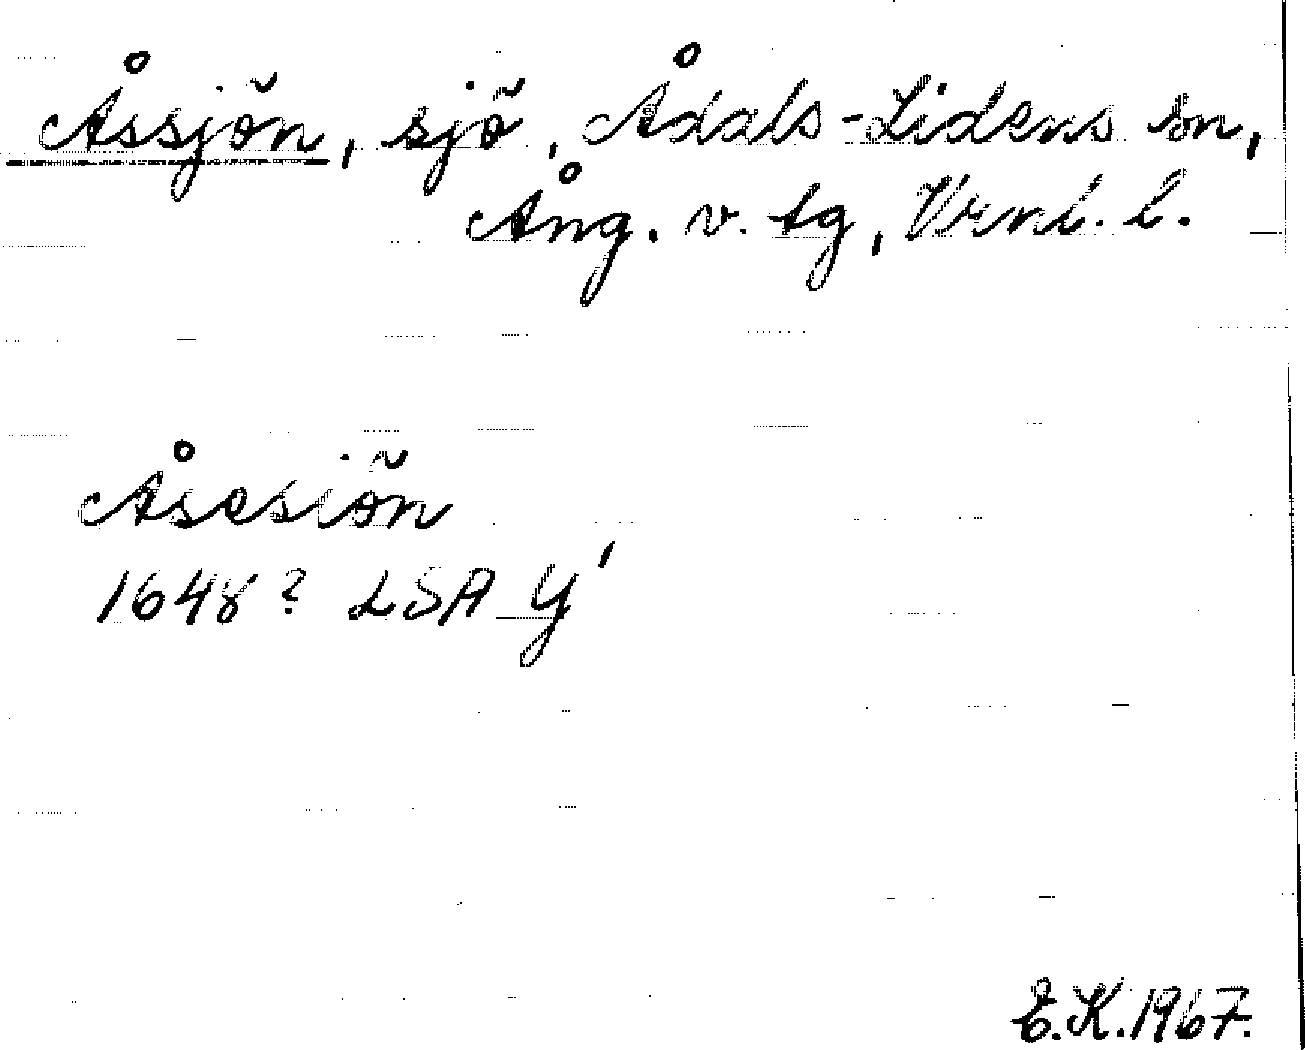 Åssjön, sjö, Ådals-Lidens sn,
Ång. v. tg, Vrnl. l.
Åsesiön
1648? LSA Y1
E.K. 1967.